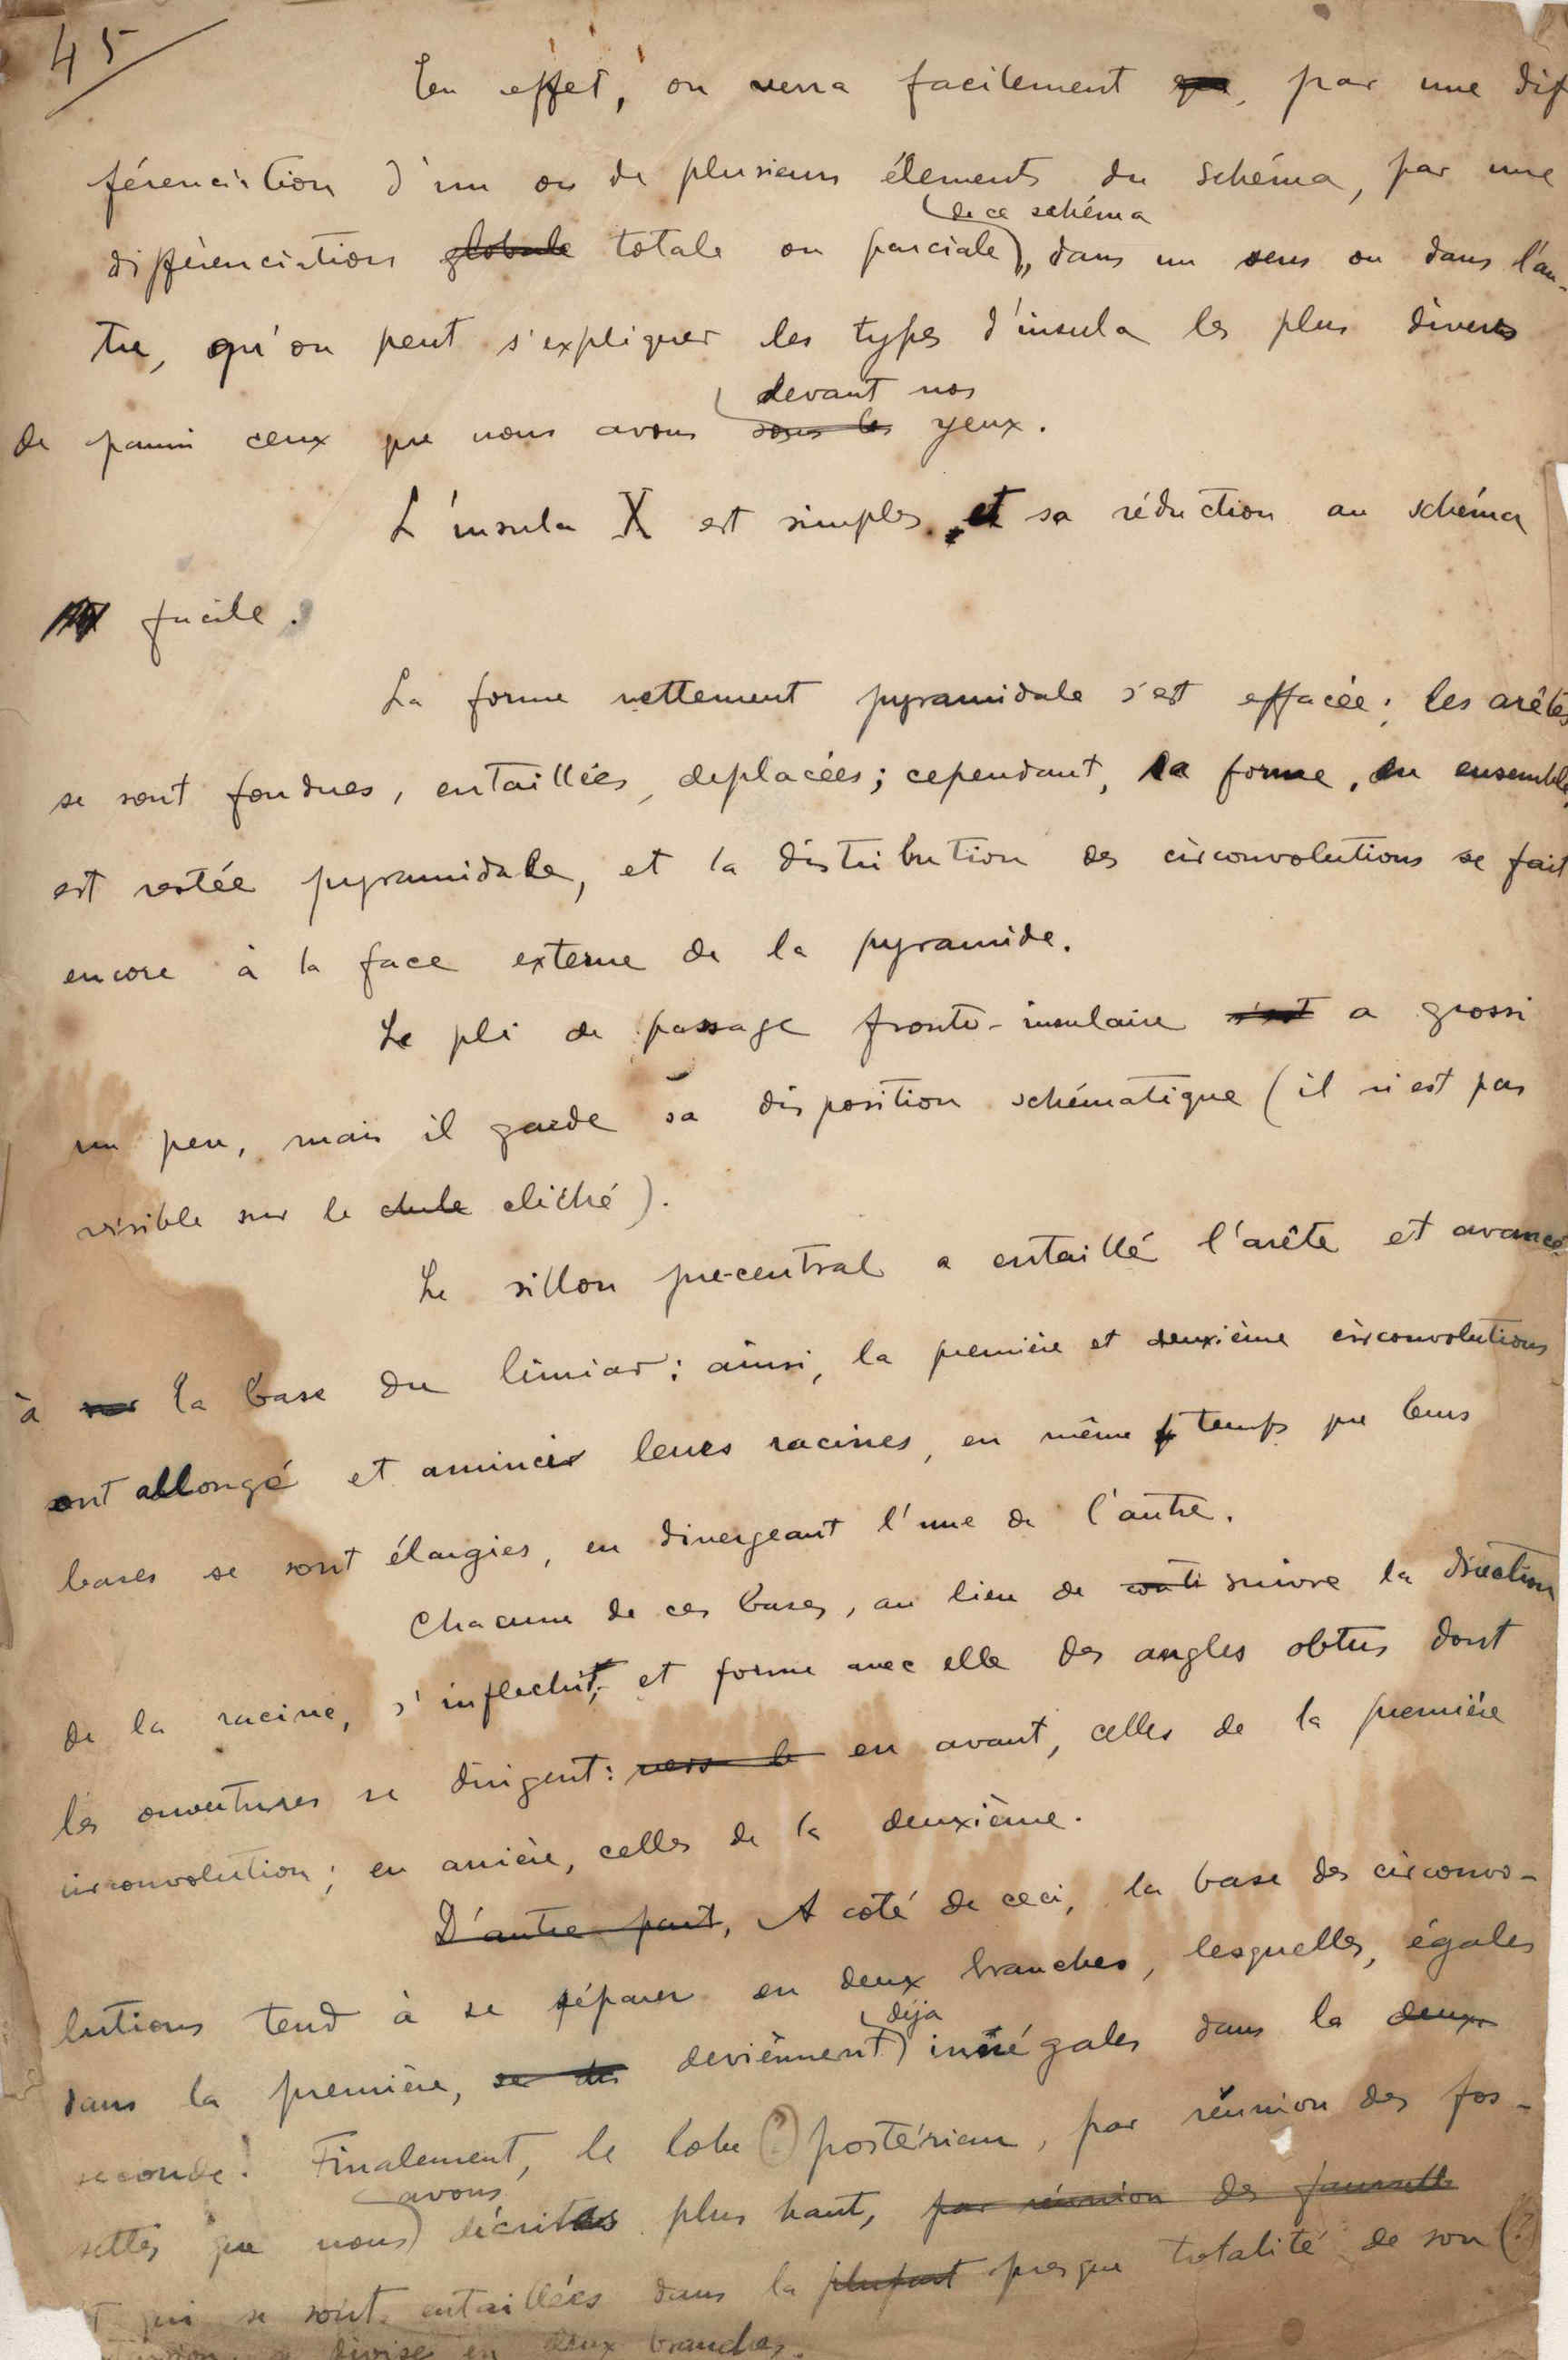 45
En effet, on verra facilement que, par une dif
férenciation d'un ou de plusieurs élements du schéma, par une
de ce schéma
différenciation globale totale ou parciale, dans un sens ou dans l'au-
tre, qu'on peut s'expliquer les types d'insula les plus divers
devant nos
de parmi ceux que nous avons sous les yeux.
L'insula X est simples, et sa réduction au schéma
facile.
La forme nettement pyramidale s'est effacée; les arêtes
se sont fondues, entaillées, deplacées; cependant, la forme, en ensemble,
est restée pyramidale, et la distribution des circonvolutions se fait
encore à la face externe de la pyramide.
Le pli de passage fronto-insulaire s'est a grossi
un peu, mais il garde sa disposition schématique (il n'est pas
visible sur le cliché).
Le sillon pre-central a entaillé l'arête et avancé
à la base du limiar: ainsi, la première et deuxième circonvolutions
ont allongé et amincir leurs racines, en même temps que leurs
bases se sont élargies, en divergeant l'une de l'autre.
Chacune de ces bases, au lieu de suivre la direction
de la racine, s'inflechit, et forme avec elle des angles obtus dont
les ouvertures se dirigent: vers le en avant, celles de la première
circonvolution; en arrière, celles de la deuxième.
D'autre part, A coté de ceci, la base des circonvo-
lutions tend à se séparer en deux branches, lesquelles, égales
déja
dans la première, se deviènnent inégales dans la deux
seconde. Finalement, le lobe (?) postérieur, par réunion des fos-
avons
settes que nous décrites plus haut, par réunion des faussette
qui se sont entaillées dans la plupart presque totalité de son (?)
divise en deux branches.